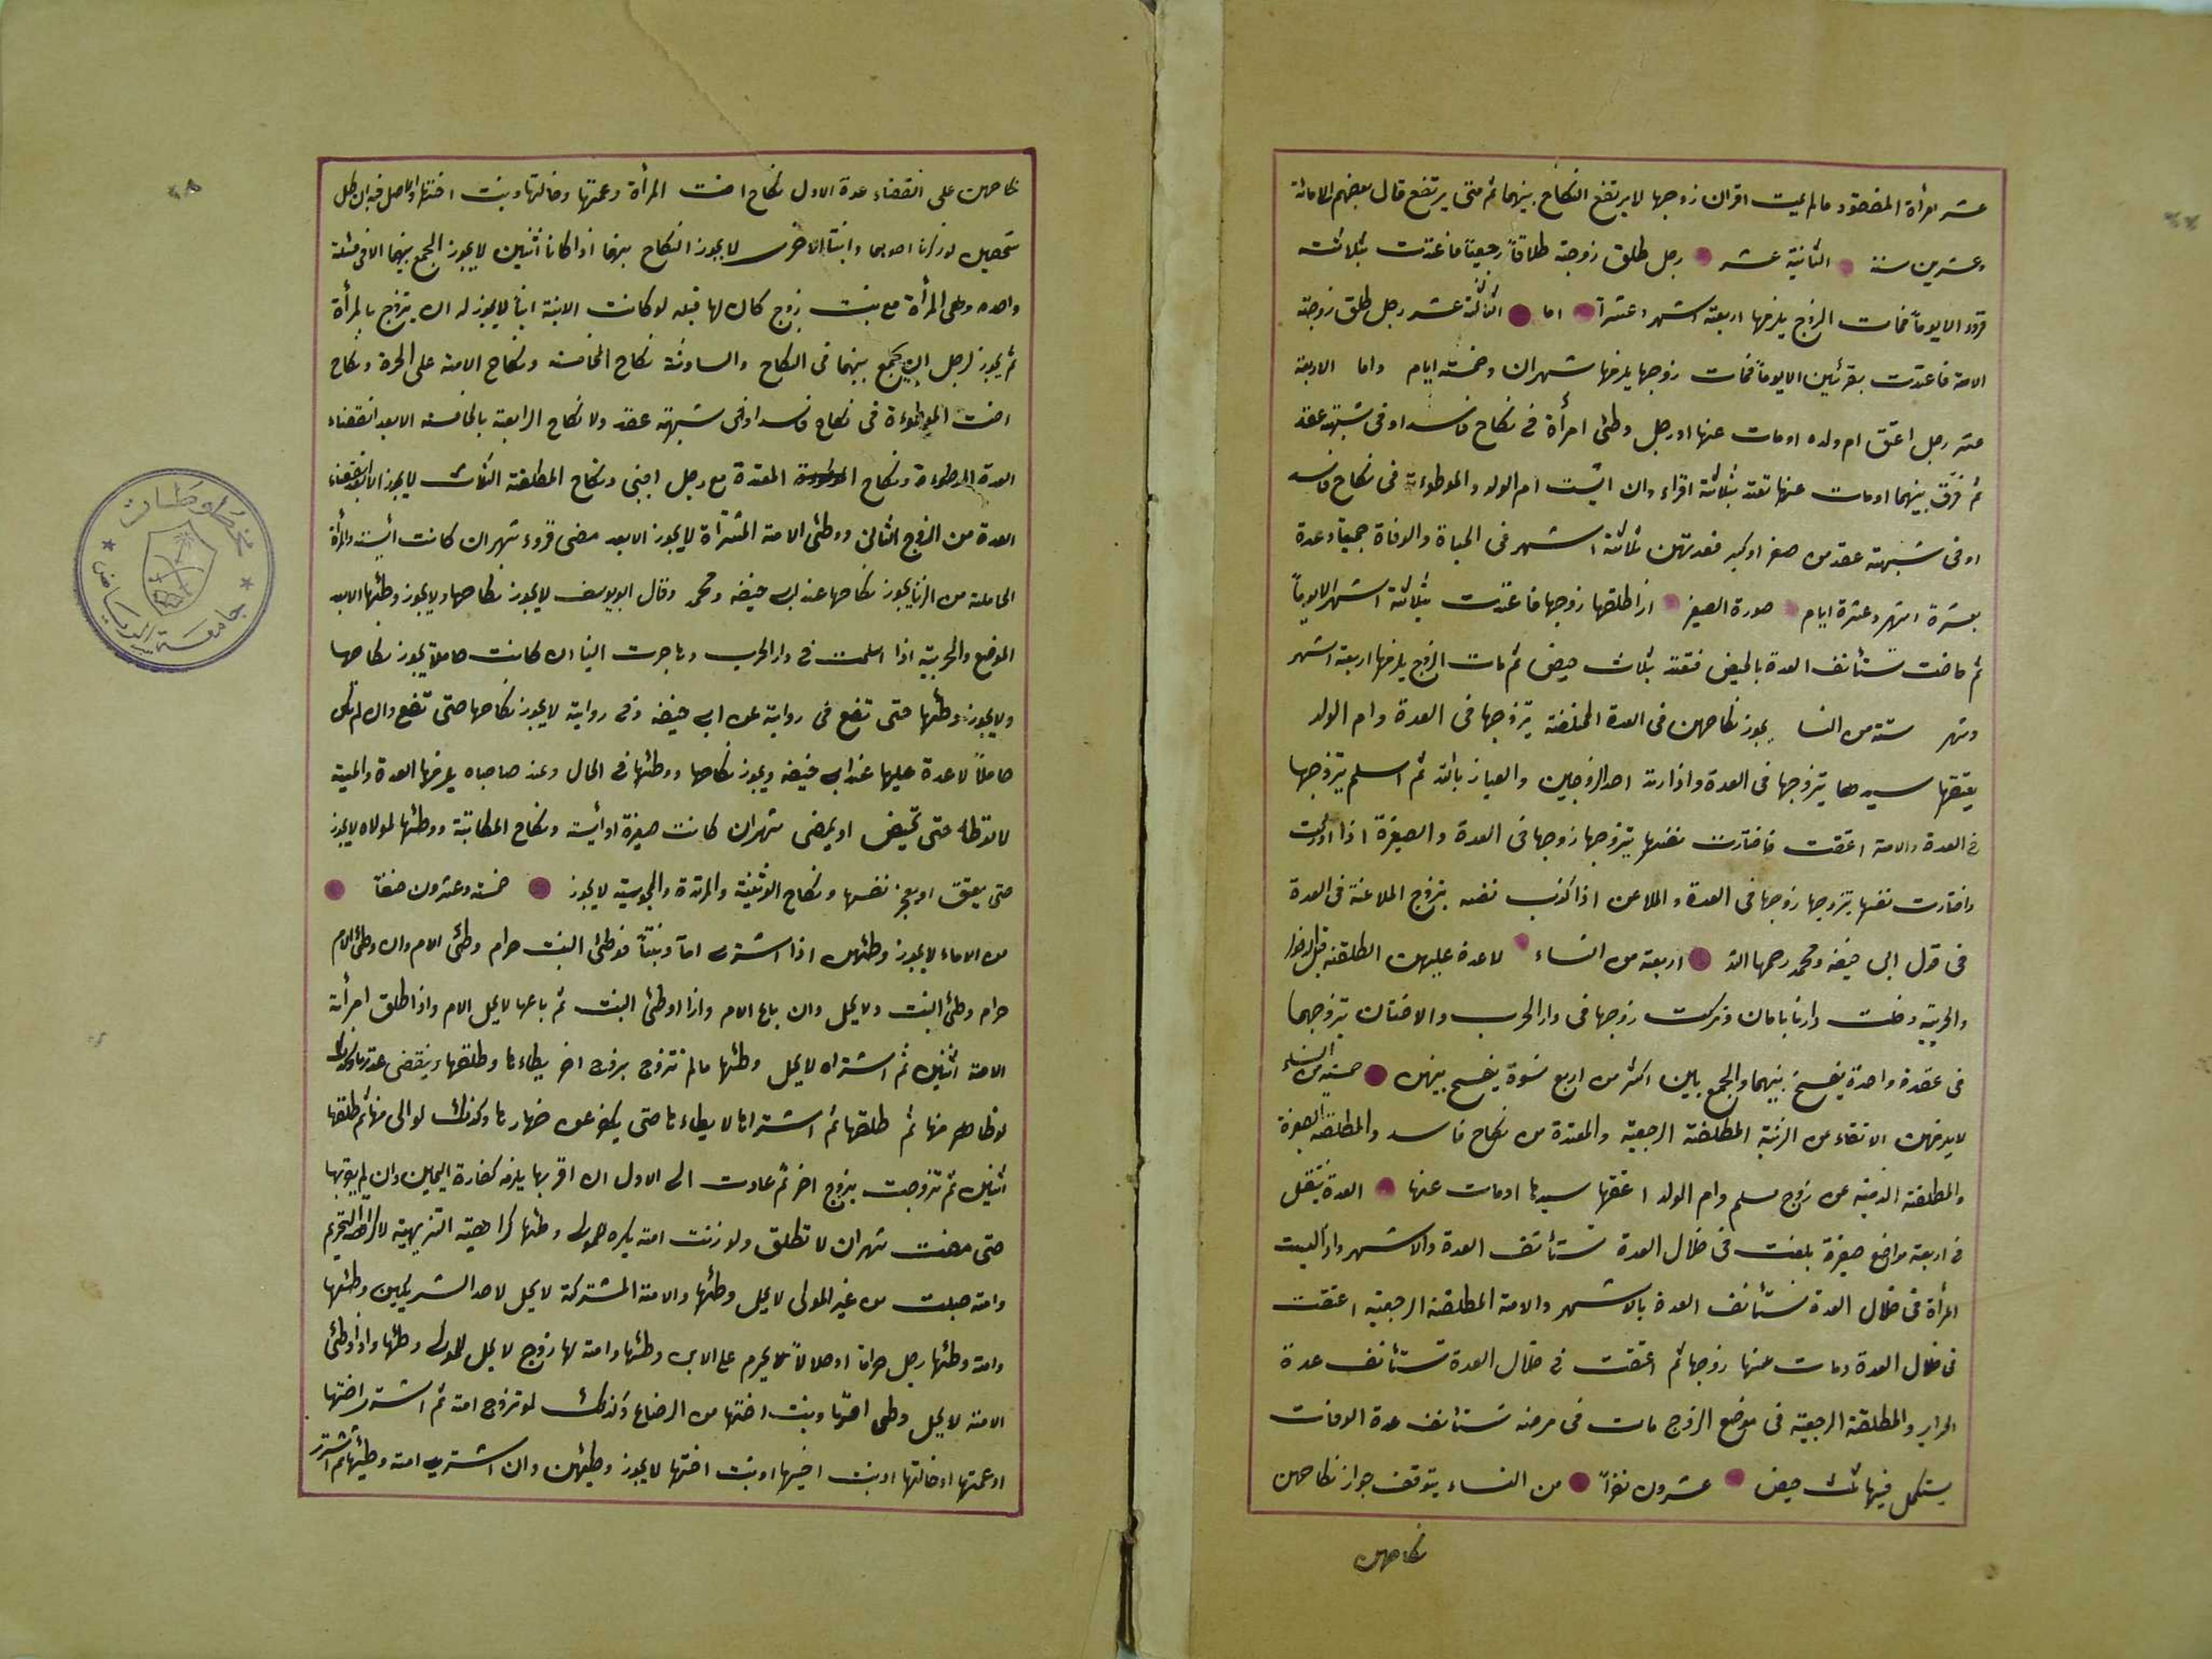 عشر امرأة المفقود مالم يمت اقران زوجها لا يرتفع النكاح بينهما ثم متى يرتفع قال بعضهم الامائة
وعشرين سنة الثانية عشر رجل طلق زوجته طلاقاً رجعياً فاعتدت بثلاثة
قروء الا يوماً فمات الزوج يلزمها اربعة اشهر وعشراً اما الثالثة عشر رجل طلق زوجته
الامة فاعتدت بقرئين الا يوماً فمات زوجها يلزمها شهران وخمسة ايام واما الاربعة
عشر رجل اعتق ام ولده او مات عنها او رجل وطئ امرأة في نكاح فاسد او في شبهة عقد
ثم فرق بينهما او مات عنها تعتد بثلاثة اقراء وان ايست ام الولد والموطوءة في نكاح فاسد
او في شبهة عقد من صغر او كبر فعدتهن ثلاثة اشهر في الحياة والوفاة جميعا وعدة
بعشرة اشهر وعشرة ايام صورة الصغير اذا طلقها زوجها فاعتدت بثلاثة اشهر الا يوماً
ثم حاضت تستأنف العدة بالحيض فتعتد بثلاث حيض ثم مات الزوج يلزمها اربعة اشهر
وشهر ستة من النسا يجوز نكاحهن في العدة المختلعة يتزوجها في العدة وام الولد
يعتقها سيدها يتزوجها في العدة واذا ارتد احد الزوجين والعياذ بالله ثم اسلم يتزوجها
في العدة والامة اعتقت فاختارت نفسها يتزوجها زوجها في العدة والصغيرة اذا ادركت
واختارت نفسها يتزوجها زوجها في العدة والملاعن اذا كذب نفسه يتزوج الملاعنة في العدة
في قول ابي حنيفه ومحمد رحمهما الله اربعة من النساء لا عدة عليهن المطلقة قبل الدخول
والحربية دخلت دارنا بامان وتركت زوجها في دار الحرب والاختان يتزوجهما
في عقدة واحدة يفسخ بينهما والجمع بين اكثر من اربع نسوة يفسخ بينهن خمسة من النساء
لا يلزمهن الاتقاء من الزينة المطلقة الرجعية والمعتدة من نكاح فاسد والمطلقة الصغيرة
والمطلقة الذمية من زوج مسلم وام الولد اعتقها سيدها او مات عنها العدة ينتقل
في اربعة مواضع صغيرة بلغت في خلال العدة تستأنف العدة والاشهر واذا ايست
المرأة في خلال العدة تستأنف العدة بالاشهر والامة المطلقة الرجعية اعتقت
في خلال العدة ومات عنها زوجها ثم اعتقت في خلال العدة تستأنف عدة
الحراير والمطلقة الرجعية في موضع الزوج مات في مرضه تستأنف عدة الوفات
يستكمل فيها ثلث حيض عشرون نفراً من النساء يتوقف جواز نكاحهن
نكاحهن
نكاحهن على انقضاء عدة الاول نكاح اخت المرأة وعمتها وخالتها وبنت اختها والاصل فيه ان كل
شخصين لو ذكرنا احديهما وانثنا الاخرى لا يجوز النكاح بينهما اذا كانا انثيين لا يجوز الجمع بينهما الا في مسئلة
واحدة وهي المرأة مع بنت زوج كان لها قبله لو كانت الابنة ابنا لا يجوز له ان يتزوج بالمرأة
ثم يجوز لرجل ان يجمع بينهما في النكاح والسادسة نكاح الخامسة ونكاح الامة على الحرة ونكاح
اخت الموطوءة في نكاح فاسد او في شبهة عقد ولا نكاح الرابعة بالخامسة الا بعد انقضاء
العدة الموطوءة ونكاح المعتدة مع رجل اجنبي ونكاح المطلقة الثلث لا يجوز الا بعد انقضاء
العدة من الزوج الثاني ووطئ الامة المشتراة لا يجوز الا بعد مضى قروء شهران كانت ايست والمرأة
الحاملة من الزنا يجوز نكاحها عند ابي حنيفه ومحمد وقال ابو يوسف لا يجوز نكاحها ولا يجوز وطئها الا بعد
الوضع والحربية اذا اسلمت في دار الحرب وهاجرت الينا ان كانت حاملا يجوز نكاحها
ولا يجوز وطئها حتى تضع في رواية عن ابي حنيفه وفي رواية لا يجوز نكاحها حتى تضع وان لم تكن
حاملاً لا عدة عليها عند ابي حنيفه ويجوز نكاحها ووطئها في الحال وعند صاحباه يلزمها العدة والمسبية
لا توطا حتى تحيض او يمضى شهران كانت صغيرة او ايست ونكاح المكاتبة ووطئها لمولاه لا يجوز
حتى يعتق او يعجز نفسها ونكاح الوثنية والمرتدة والمجوسية لا يجوز خمسة وعشرون صنفا
من الاماء لا يجوز وطئهن اذا اشترى اماً وبنتاً فوطئ البنت حرام وطئ الام وان وطئ الام
حرام وطئ البنت ولا يحل وان باع الام واذا وطئ البنت ثم باعها لا يحل الام واذا طلق امرأته
الامة اثنين ثم اشتراه لا يحل وطئها مالم تتزوج بزوج اخر يطاءها وطلقها وينقضى عدتها وكذلك
لو ظاهر منها ثم طلقها ثم اشتراها لا يطاءها حتى يكفر عن ظهارها وكذلك لو الى منها ثم طلقها
اثنين ثم تزوجت بزوج اخر ثم عادت الى الاول ان اقربها يلزمه كفارة اليمين وان لم يقربها
حتى مضت شهران لا تطلق ولو زنت امته يكره للمولى وطئها كراهية التنزيهية لا كراهة التحريم
وامته حبلت من غير المولى لا يحل وطئها والامة المشتركة لا يحل لاحد الشريكين وطئها
وامة وطئها رجل حراما او حلالاً يحرم على الابن وطئها وامة لها زوج لا يحل للمولى وطئها واذا وطئ
الامة لا يحل وطى اختها وبنت اختها من الرضاع وكذلك لو تزوج امة ثم اشترى اختها
او عمتها او خالتها او بنت اخيها او بنت اختها لا يجوز وطئهن وان اشترى امة وطئها ثم اشترى
مخطوطات
جامعة الرياض